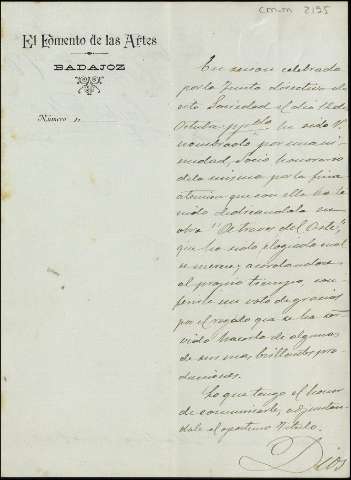 CM-M 2195
El Fomento de las Artes
BADAJOZ
Número
En sesion celebrada
por la Junta directiva de
esta Sociedad el dia 12 de
Octubre ppdo ha sido V.
nombrado, por unani-
midad, Socio honorario
de la misma por la fina
atencion que con ella ha te-
nido dedicandola su
obra "De traves del Oeste",
que ha sido elogiada cual
se merece; acordandose
al propio tiempo, con-
ferirle un voto de gracias
por el regalo que se ha ser-
vido hacerla de algunas
de sus mas brillantes pro-
ducciones.
Lo que tengo el honor
de comunicarle, adjuntan-
dole el oportuno Titulo.
Dios